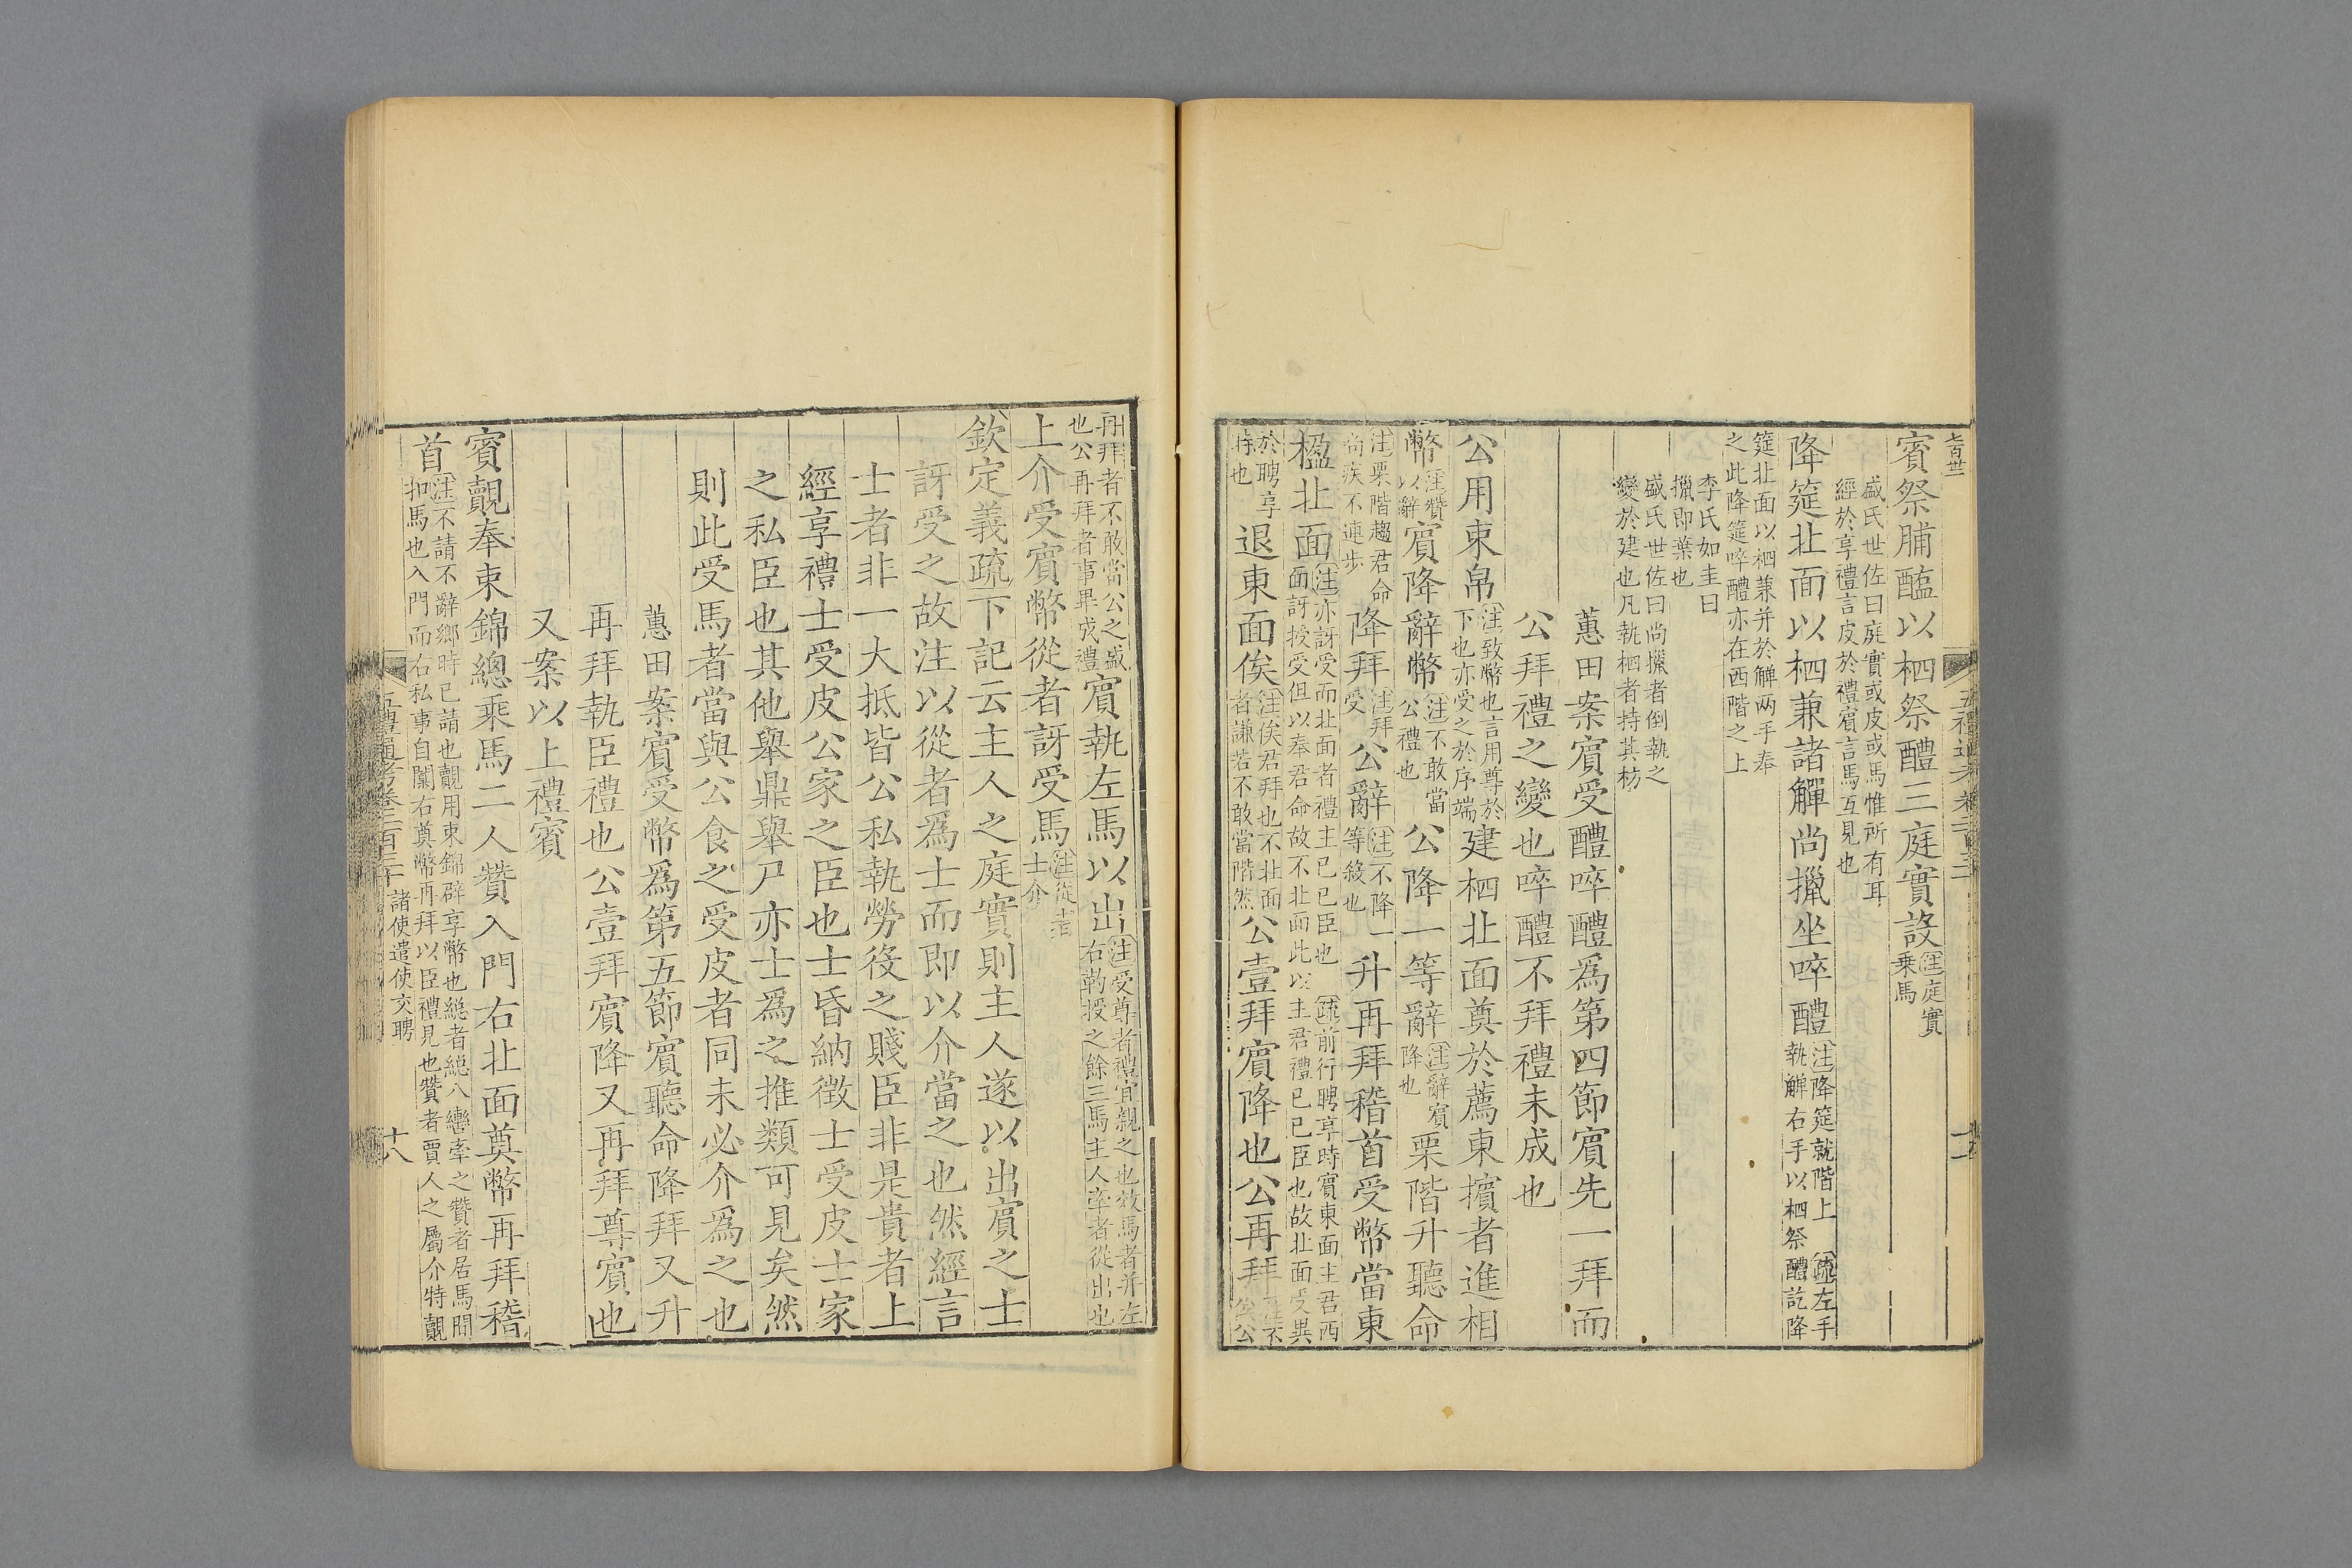 賓祭脯醢以柶祭醴三庭實設注庭實乗馬
盛氏世佐曰庭實或皮或馬惟所有耳
經於享禮言皮於禮賓言馬互見也
降筵北面以柶兼諸觶尚擸坐啐醴注降筵就階上 疏左手執觶右手以柶祭醴訖降
筵北面以柶兼并於觶两手奉
之此降筵啐醴亦在西階之上
李氏如圭曰
擸即葉也
盛氏世佐曰尚擸者倒執之
變於建也凡執柶者持其枋
蕙田案賓受醴啐醴爲第四節賓先一拜而
公拜禮之變也啐醴不拜禮未成也
公用束帛注致幣也言用尊於下也亦受之於序端建柶北面奠於薦東擯者進相
幣注贊以辭賓降辭幣注不敢當公禮也公降一等辭注辭賓降也栗階升聽命
注栗階趨君命尚疾不連步降拜注拜受公辭注不降等殺也升再拜稽首受幣當東
楹北面注亦訝受而北面者禮主已已臣也 疏前行聘享時賓東面主君西面訝授受但以奉君命故不北面此以主君禮已已臣也故北面受異
於聘享時也退東面俟注俟君拜也不北面者謙若不敢當階然公壹拜賓降也公再拜注不俟公
再拜者不敢當公之盛也公再拜者事畢成禮賓執左馬以出注受尊者禮宜親之也效馬者并左右靮授之餘三馬主人牽者從出也
上介受賓幣從者訝受馬注從者士介
欽定義疏下記云主人之庭實則主人遂以出賓之士
訝受之故注以從者爲士而即以介當之也然經言
士者非一大抵皆公私執勞役之賤臣非是貴者上
經享禮士受皮公家之臣也士昏納徵士受皮士家
之私臣也其他舉鼎舉尸亦士爲之推類可見矣然
則此受馬者當與公食之受皮者同未必介爲之也
蕙田案賓受幣爲第五節賓聽命降拜又升
再拜執臣禮也公壹拜賓降又再拜尊賓也
又案以上禮賓
賓覿奉束錦總乘馬二人贊入門右北面奠幣再拜稽
首注不請不辭鄉時已請也覿用束錦辟享幣也總者總八轡牽之贊者居馬間扣馬也入門而右私事自闑右奠幣再拜以臣禮見也贊者賈人之屬介特覿
五禮通考卷二百三十 諸使遣使交聘 十八